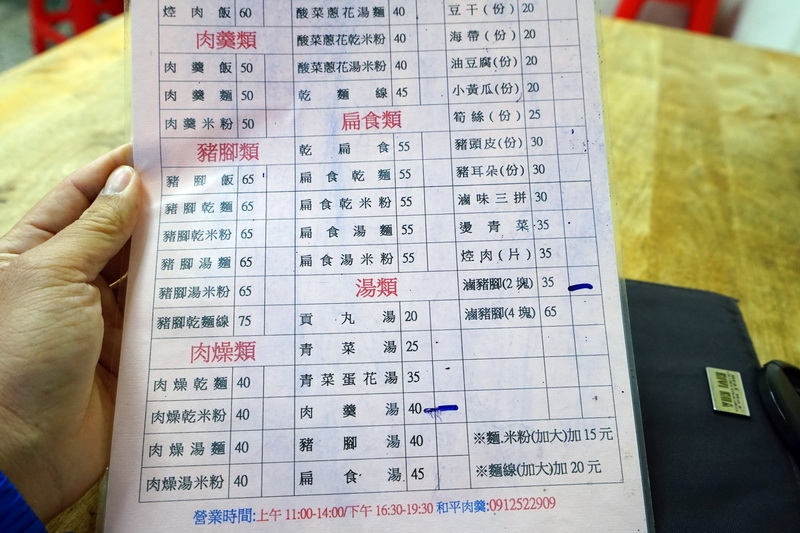 焢肉飯 60
肉羹類
肉羹飯 50
肉羹麵 50
肉羹米粉 50
豬腳類
豬腳飯 65
豬腳乾麵 65
豬腳乾米粉 65
豬腳湯麵 65
豬腳湯米粉 65
豬腳乾麵線 75
肉燥類
肉燥乾麵 40
肉燥乾米粉 40
肉燥湯麵 40
肉燥湯米粉 40
酸菜蔥花湯麵 40
酸菜蔥花乾米粉 40
酸菜蔥花湯米粉 40
乾麵線 45
扁食類
乾扁食 55
扁食乾麵 55
扁食乾米粉 55
扁食湯麵 55
扁食湯米粉 55
湯類
貢丸湯 20
青菜湯 25
青菜蛋花湯 35
肉羹湯 40
豬腳湯 40
扁食湯 45
豆干(份) 20
海帶(份) 20
油豆腐(份) 20
小黃瓜(份) 20
筍絲(份) 25
豬頭皮(份) 30
豬耳朵(份) 30
滷味三拼 30
燙青菜 35
焢肉(片) 35
滷豬腳(2塊) 35
滷豬腳(4塊) 65
※麵.米粉(加大)加15元
※麵線(加大)加20元
營業時間:上午 11:00-14:00/下午 16:30-19:30 和平肉羹:0912522909